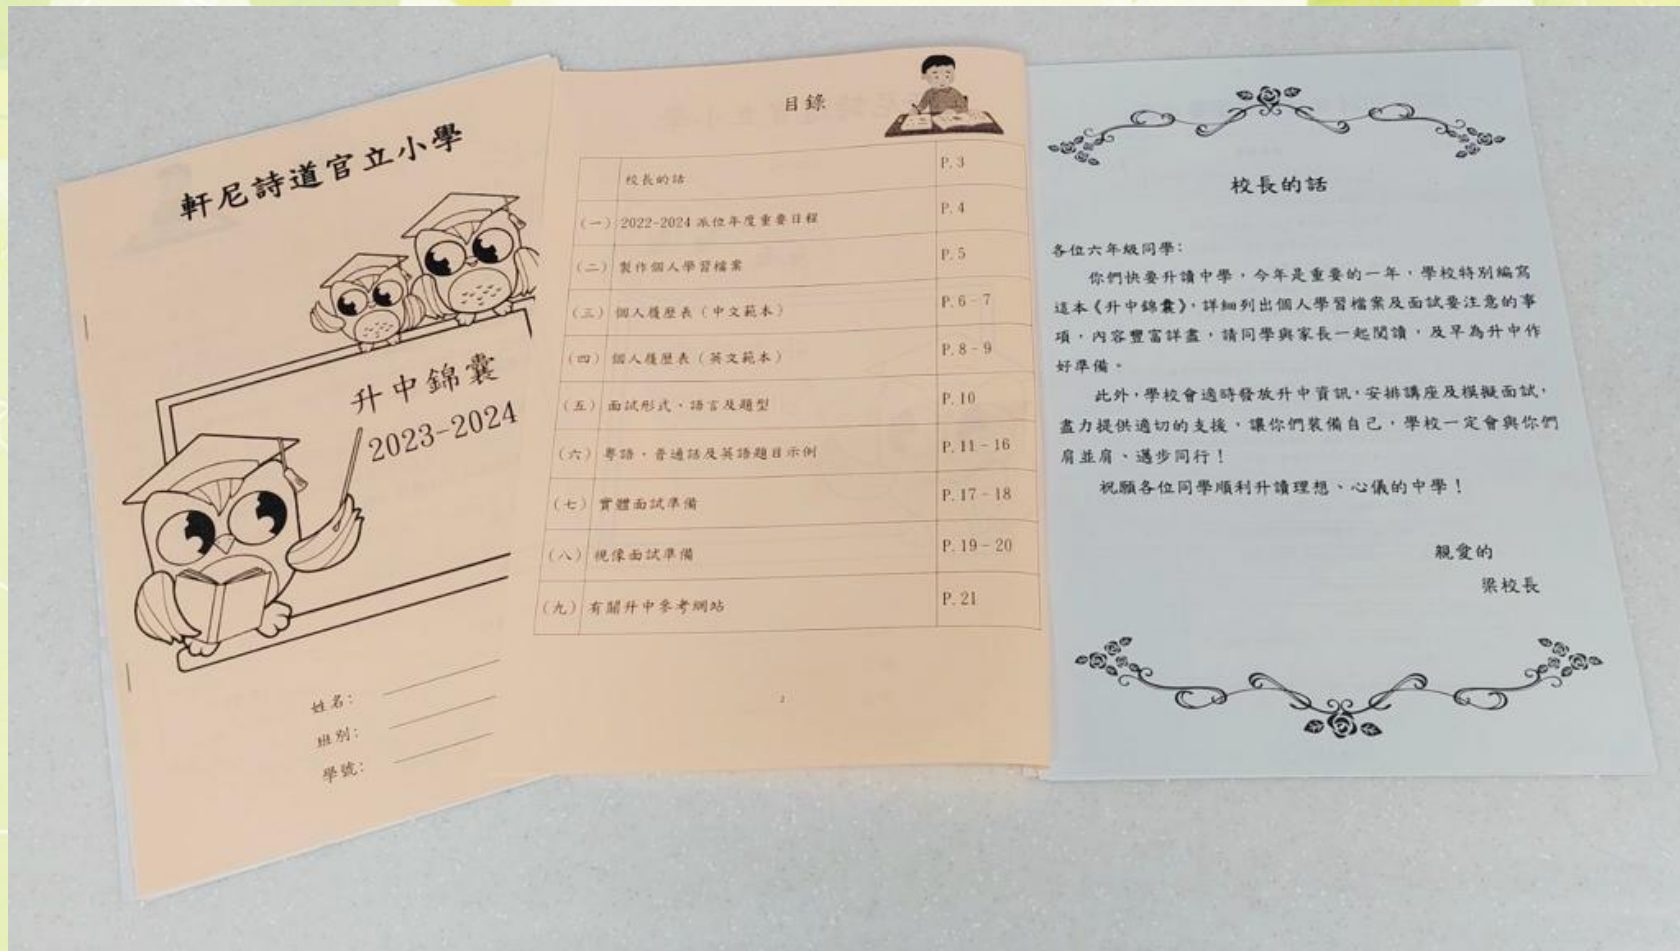 軒尼詩道官立小學
升中錦囊
2023-2024
姓名：
班別：
學號：
目錄
校長的話 P.3
（一） 2022-2024 派位年度重要日程 P.4
（二） 製作個人學習檔案 P.5
（三） 個人履歷表（中文範本） P.6-7
（四） 個人履歷表（英文範本） P.8-9
（五） 面試形式、語言及題型 P.10
（六） 粵語、普通話及英語題目示例 P.11-16
（七） 實體面試準備 P.17-18
（八） 視像面試準備 P.19-20
（九） 有關升中參考網站 P.21
2
校長的話
各位六年級同學：
你們快要升讀中學，今年是重要的一年，學校特別編寫
這本《升中錦囊》，詳細列出個人學習檔案及面試要注意的事
項，內容豐富詳盡，請同學與家長一起閱讀，及早為升中作
好準備。
此外，學校會適時發放升中資訊，安排講座及模擬面試，
盡力提供適切的支援，讓你們裝備自己，學校一定會與你們
肩並肩、邁步同行！
祝願各位同學順利升讀理想、心儀的中學！
親愛的
梁校長